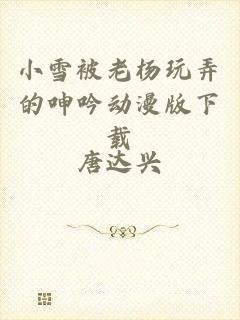 小雪被老杨玩弄
的呻吟动漫版下
载
唐达兴